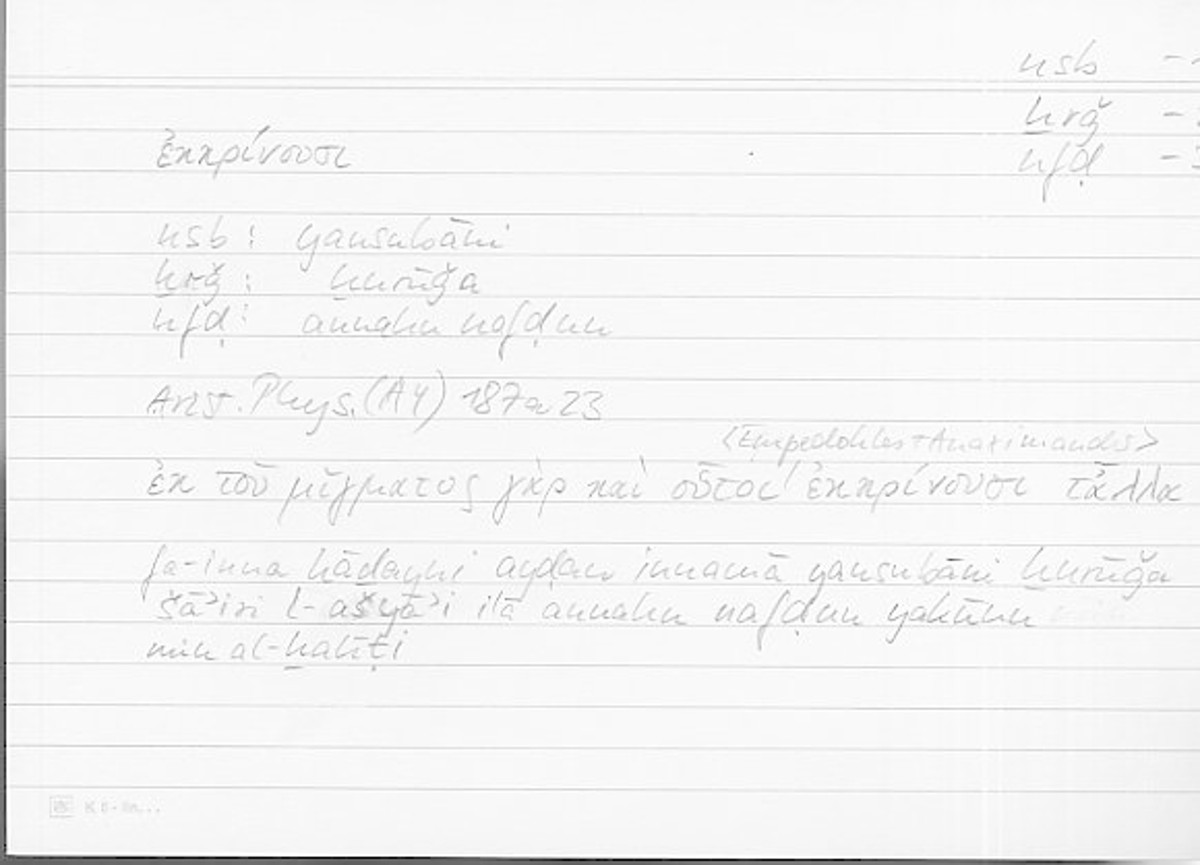 nsb -
ḫrǧ -
ἐκκρίνουσι
nfḍ -
nsb : yansubāni
ḫrǧ : ḫurūǧa
nfḍ : annahu nafḍun
Arist. Phys. (A4) 187a23
<Empedokles + Anaximander>
ἐκ τοῦ μίγματος γὰρ καὶ οὗτοι ἐκκρίνουσι τἆλλα
fa-inna hāḏayni ayḍan innamā yansubāni ḫurūǧa
šā'iri l-ašyā'i ilā annahu nafḍun yakūnu
min al-ḫalīṭi